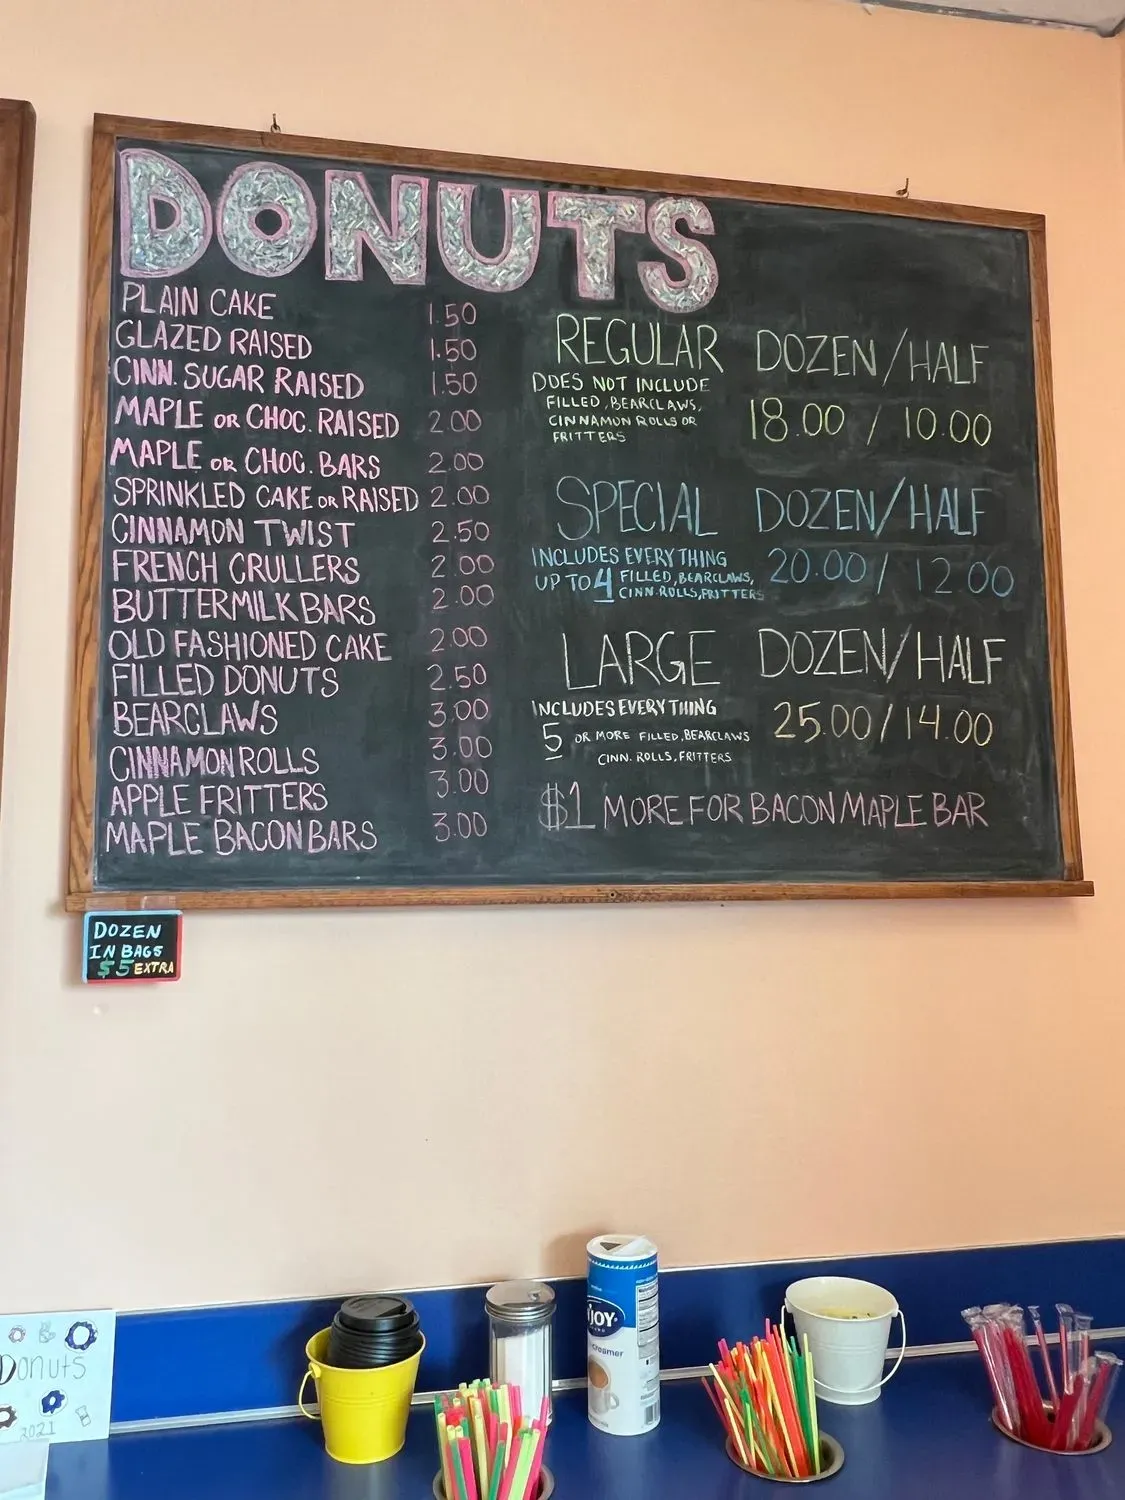 DONUTS
PLAIN CAKE 1.50
GLAZED RAISED 1.50
CINN. SUGAR RAISED 1.50
MAPLE OR CHOC. RAISED 2.00
MAPLE OR CHOC. BARS 2.00
SPRINKLED CAKE OR RAISED 2.00
CINNAMON TWIST 2.50
FRENCH CRULLERS 2.00
BUTTERMILK BARS 2.00
OLD FASHIONED CAKE 2.00
FILLED DONUTS 2.50
BEARCLAWS 3.00
CINNAMON ROLLS 3.00
APPLE FRITTERS 3.00
MAPLE BACON BARS 3.00
REGULAR DOZEN/HALF
DOES NOT INCLUDE
FILLED, BEARCLAWS,
CINNAMON ROLLS OR
FRITTERS
18.00 / 10.00
SPECIAL DOZEN/HALF
INCLUDES EVERYTHING
UP TO 4 FILLED, BEARCLAWS,
CINN. ROLLS, FRITTERS
20.00 / 12.00
LARGE DOZEN/HALF
INCLUDES EVERYTHING
5 OR MORE FILLED, BEARCLAWS
CINN. ROLLS, FRITTERS
25.00/14.00
$1 MORE FOR BACON MAPLE BAR
DOZEN
IN BAGS
$5 EXTRA
Donuts
2021
N'JOY
creamer